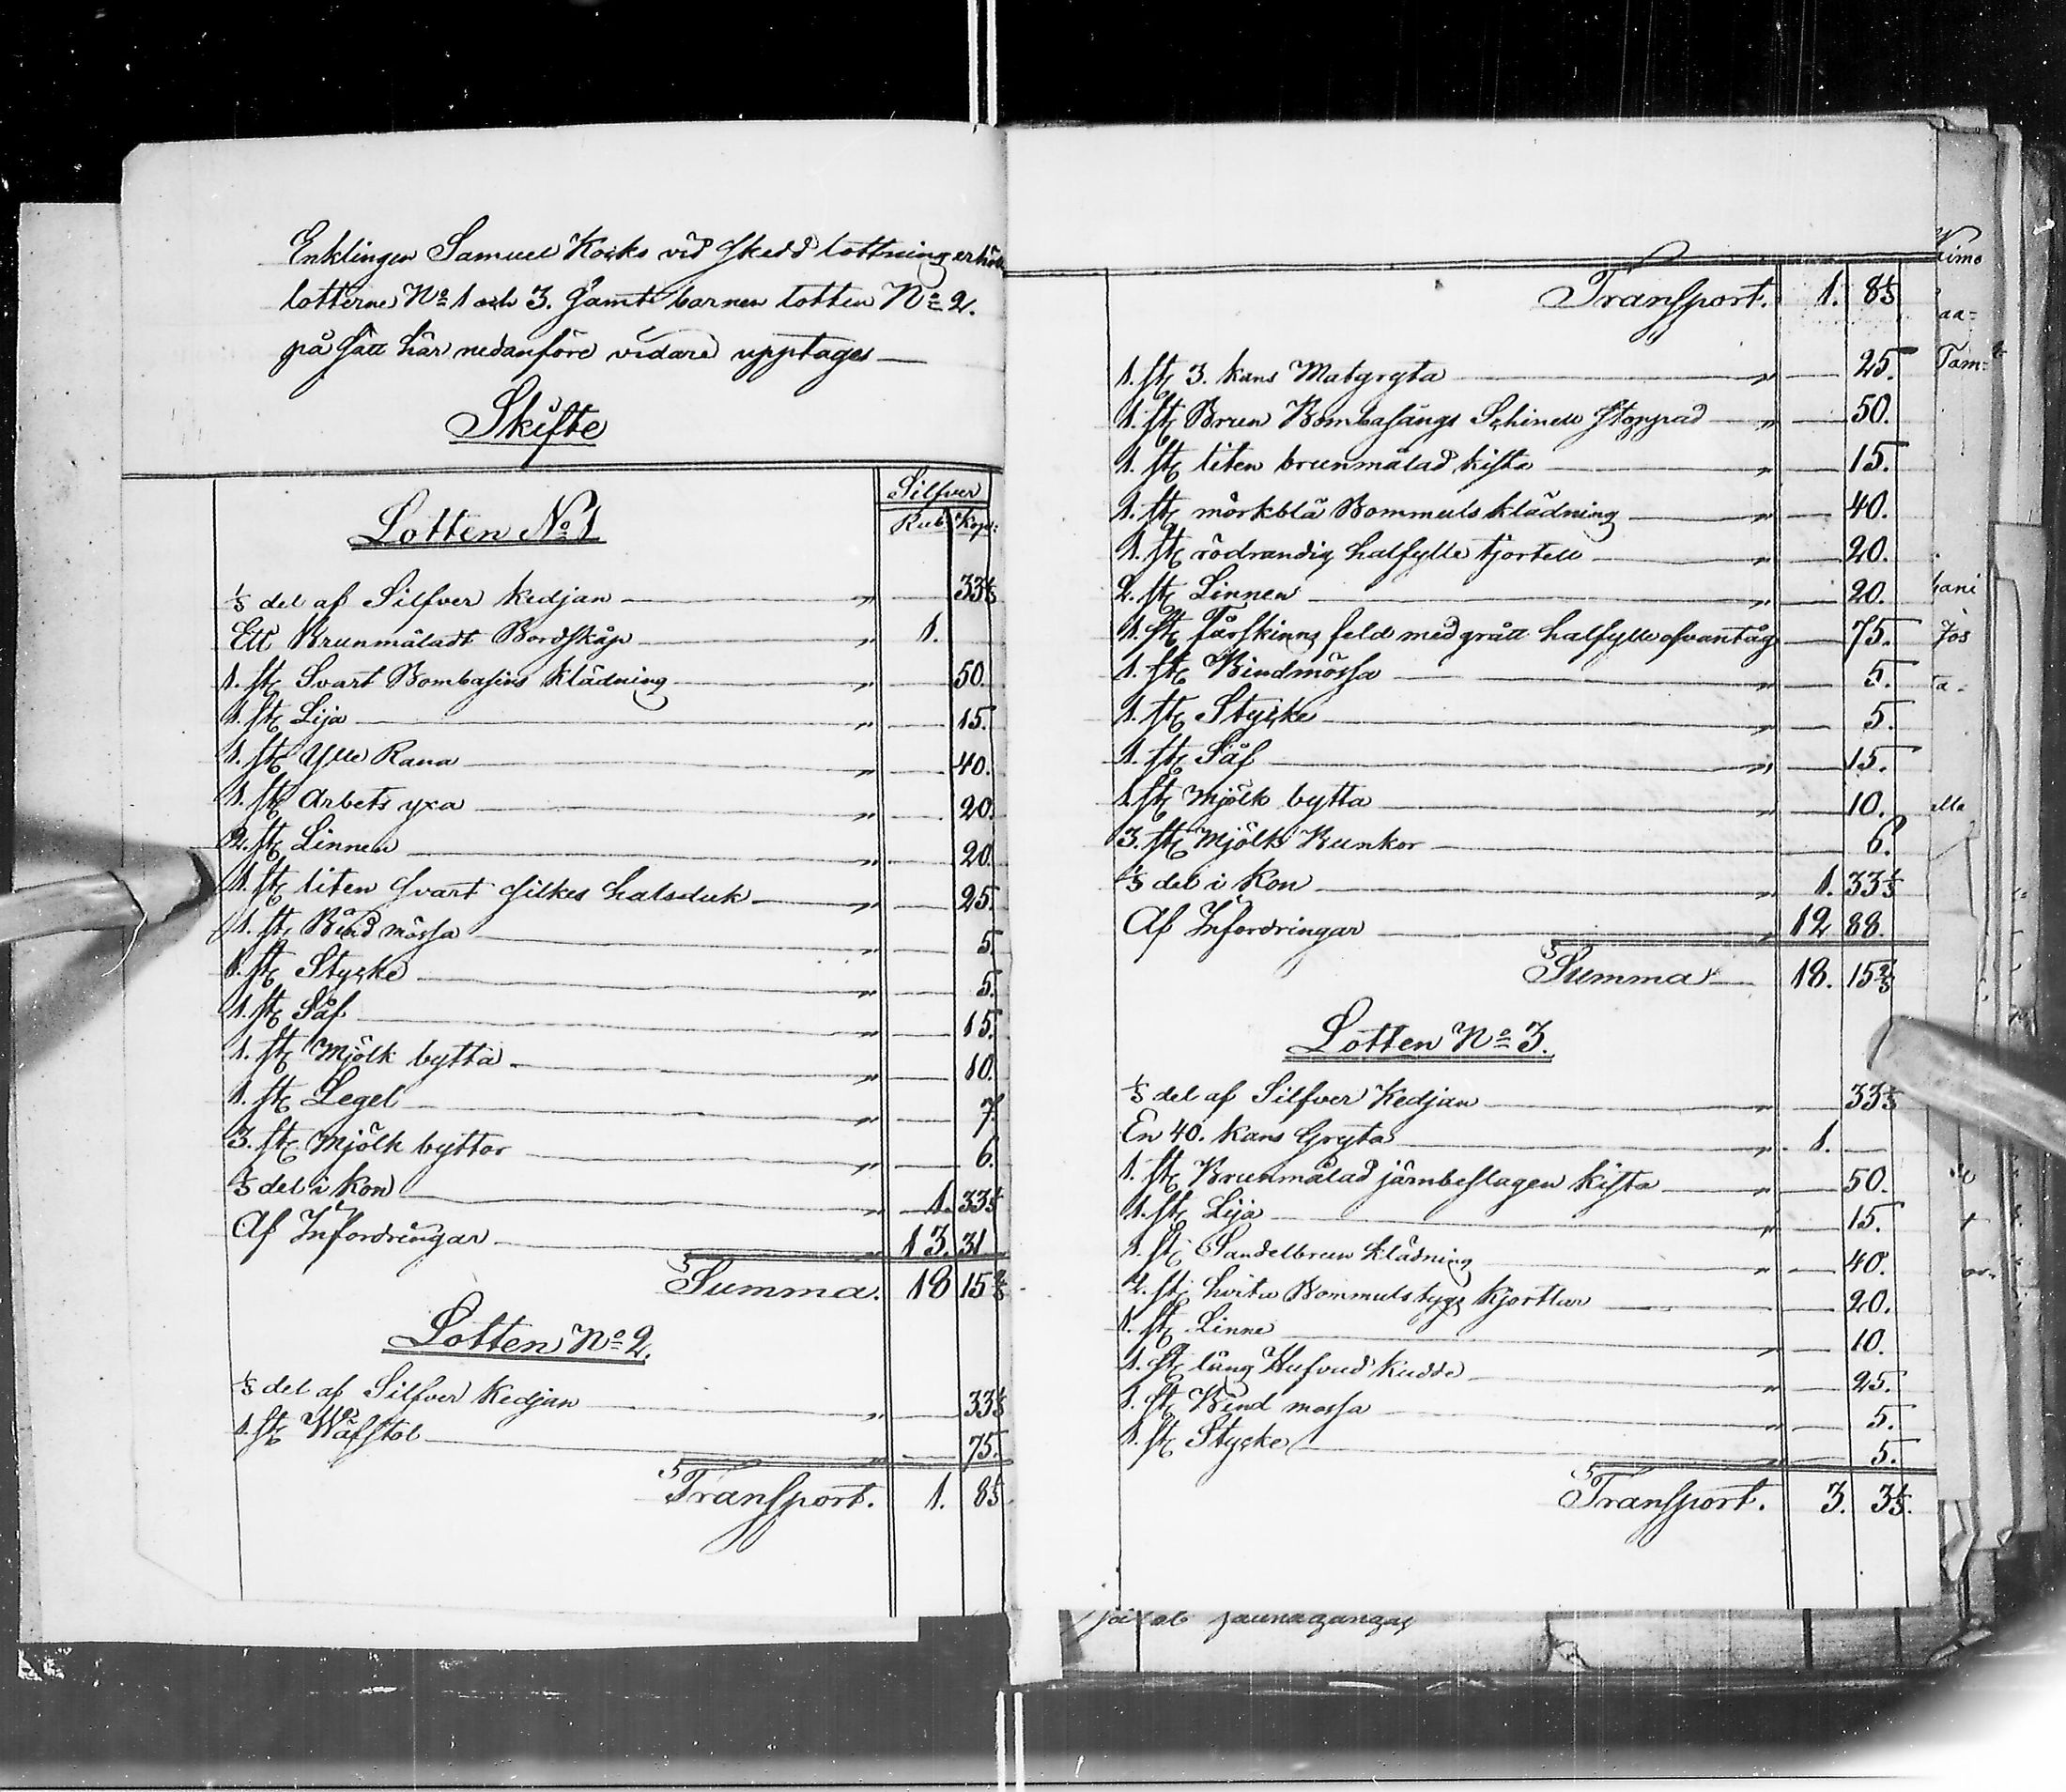 Enklingen Samuel Koiks vid skedd lottning erhöll
lotterne No 1 och 3. samt barnen lotten No 2.
på sätt här nedanföre vidare upptages —
Skifte
Silfver
Lotten No 1
Rub. Kop:
1/3 del af Silfver kedjan — " — 33 1/3
Ett Brunmåladt Bordskåp — " 1.
1. st. Svart Bombasins klädning — " — 50.
1. st. Lija — " — 15.
1. st. Ylle Rana — " — 40.
1. st. Arbets yxa — " — 20.
2. st. Linnen — " — 20.
1. st. liten svart silkes halsduk — " — 25.
1. st. Bind mössa — " — 5.
1. st. Stycke — " — 5.
1. st. Såf — " — 15.
1. st. Mjölk bytta — " — 10.
1. st. Legel — " — 7.
3. st. Mjölk byttor — " — 6.
1/3 del i Kon — " 1. 33 1/3
Af Infordringar — " 13. 31
Summa. 18 15 2/3
Lotten No 2.
1/3 del af Silfver Kedjan — " — 33 1/3
1. st. Wäfstol — " — 75.
Transport. 1. 8 1/3
Transport. 1. 8 1/3
1. st. 3. kans Matgryta — " — 25.
1. st. Brun Bombasängs Schinell stoppad — " — 50.
1. st. liten brunmålad kista — " — 15.
1. st. mörkblå Bommuls klädning — " — 40.
1. st. rödrandig halfylle kjortell — " — 20.
2. st. Linnen — " — 20.
1. st. Fårskinns feld med grått halfylle ofvantåg — 75.
1. st. Bindmössa — " — 5.
1. st. Stycke — " — 5.
1. st. Såf — " — 15.
1. st. Mjölk bytta — " — 10.
3. st. Mjölk Bunkor — 6.
1/3 del i Kon — " 1. 33 1/3
Af Infordringar — " 12 88.
Summa — 18. 15 2/3
Lotten No 3.
1/3 del af Silfver Kedjan — " — 33 1/3
En 40. kans Gryta — " 1. —
1. st. Brunmålad järnbeslagen kista — " — 50.
1. st. Lija — " — 15.
1. st. Sandelbrun klädning — " — 40.
2. st. hvita Bommulstygs kjortlar — " — 20.
1. st. Linne — " — 10.
1. st. lång Hufvud Kudde — " — 25.
1. st. Bind mössa — " — 5.
1. st. Stycke — " — 5.
Transport. 3. 3 1/3.